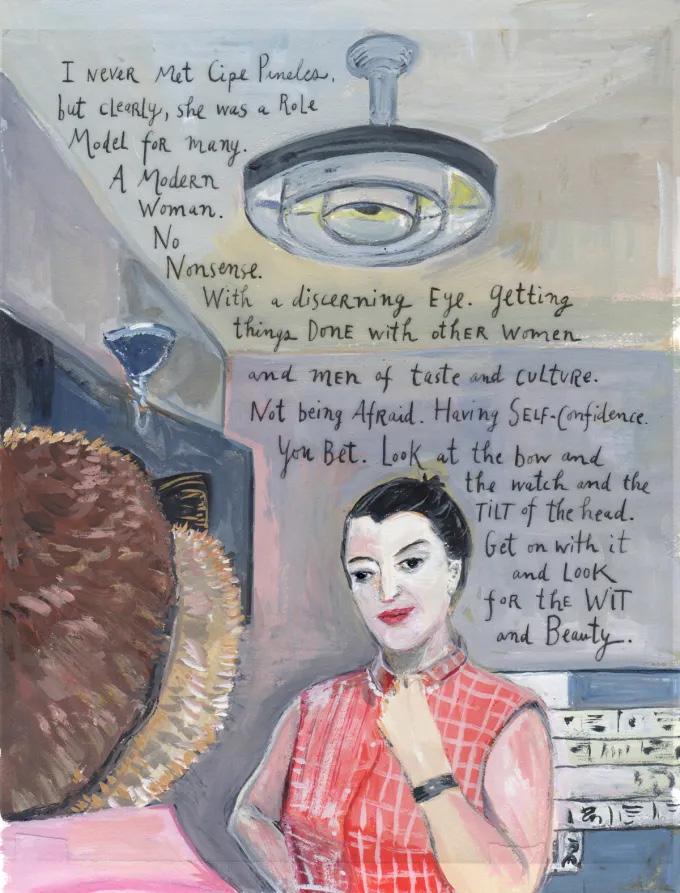 I NEVER Met Cipe Pineles,
but clearly, she was a Role
Model for many.
A Modern
Woman.
No
Nonsense.
With a discerning Eye. getting
things DONE with otHER Women
and men of taste and CULTURE.
Not being Afraid. Having SELF-Confidence.
You Bet. Look at the bow and
the watch and the
TILT of the head.
Get on with it
and LOOK
for the WIT
and Beauty.